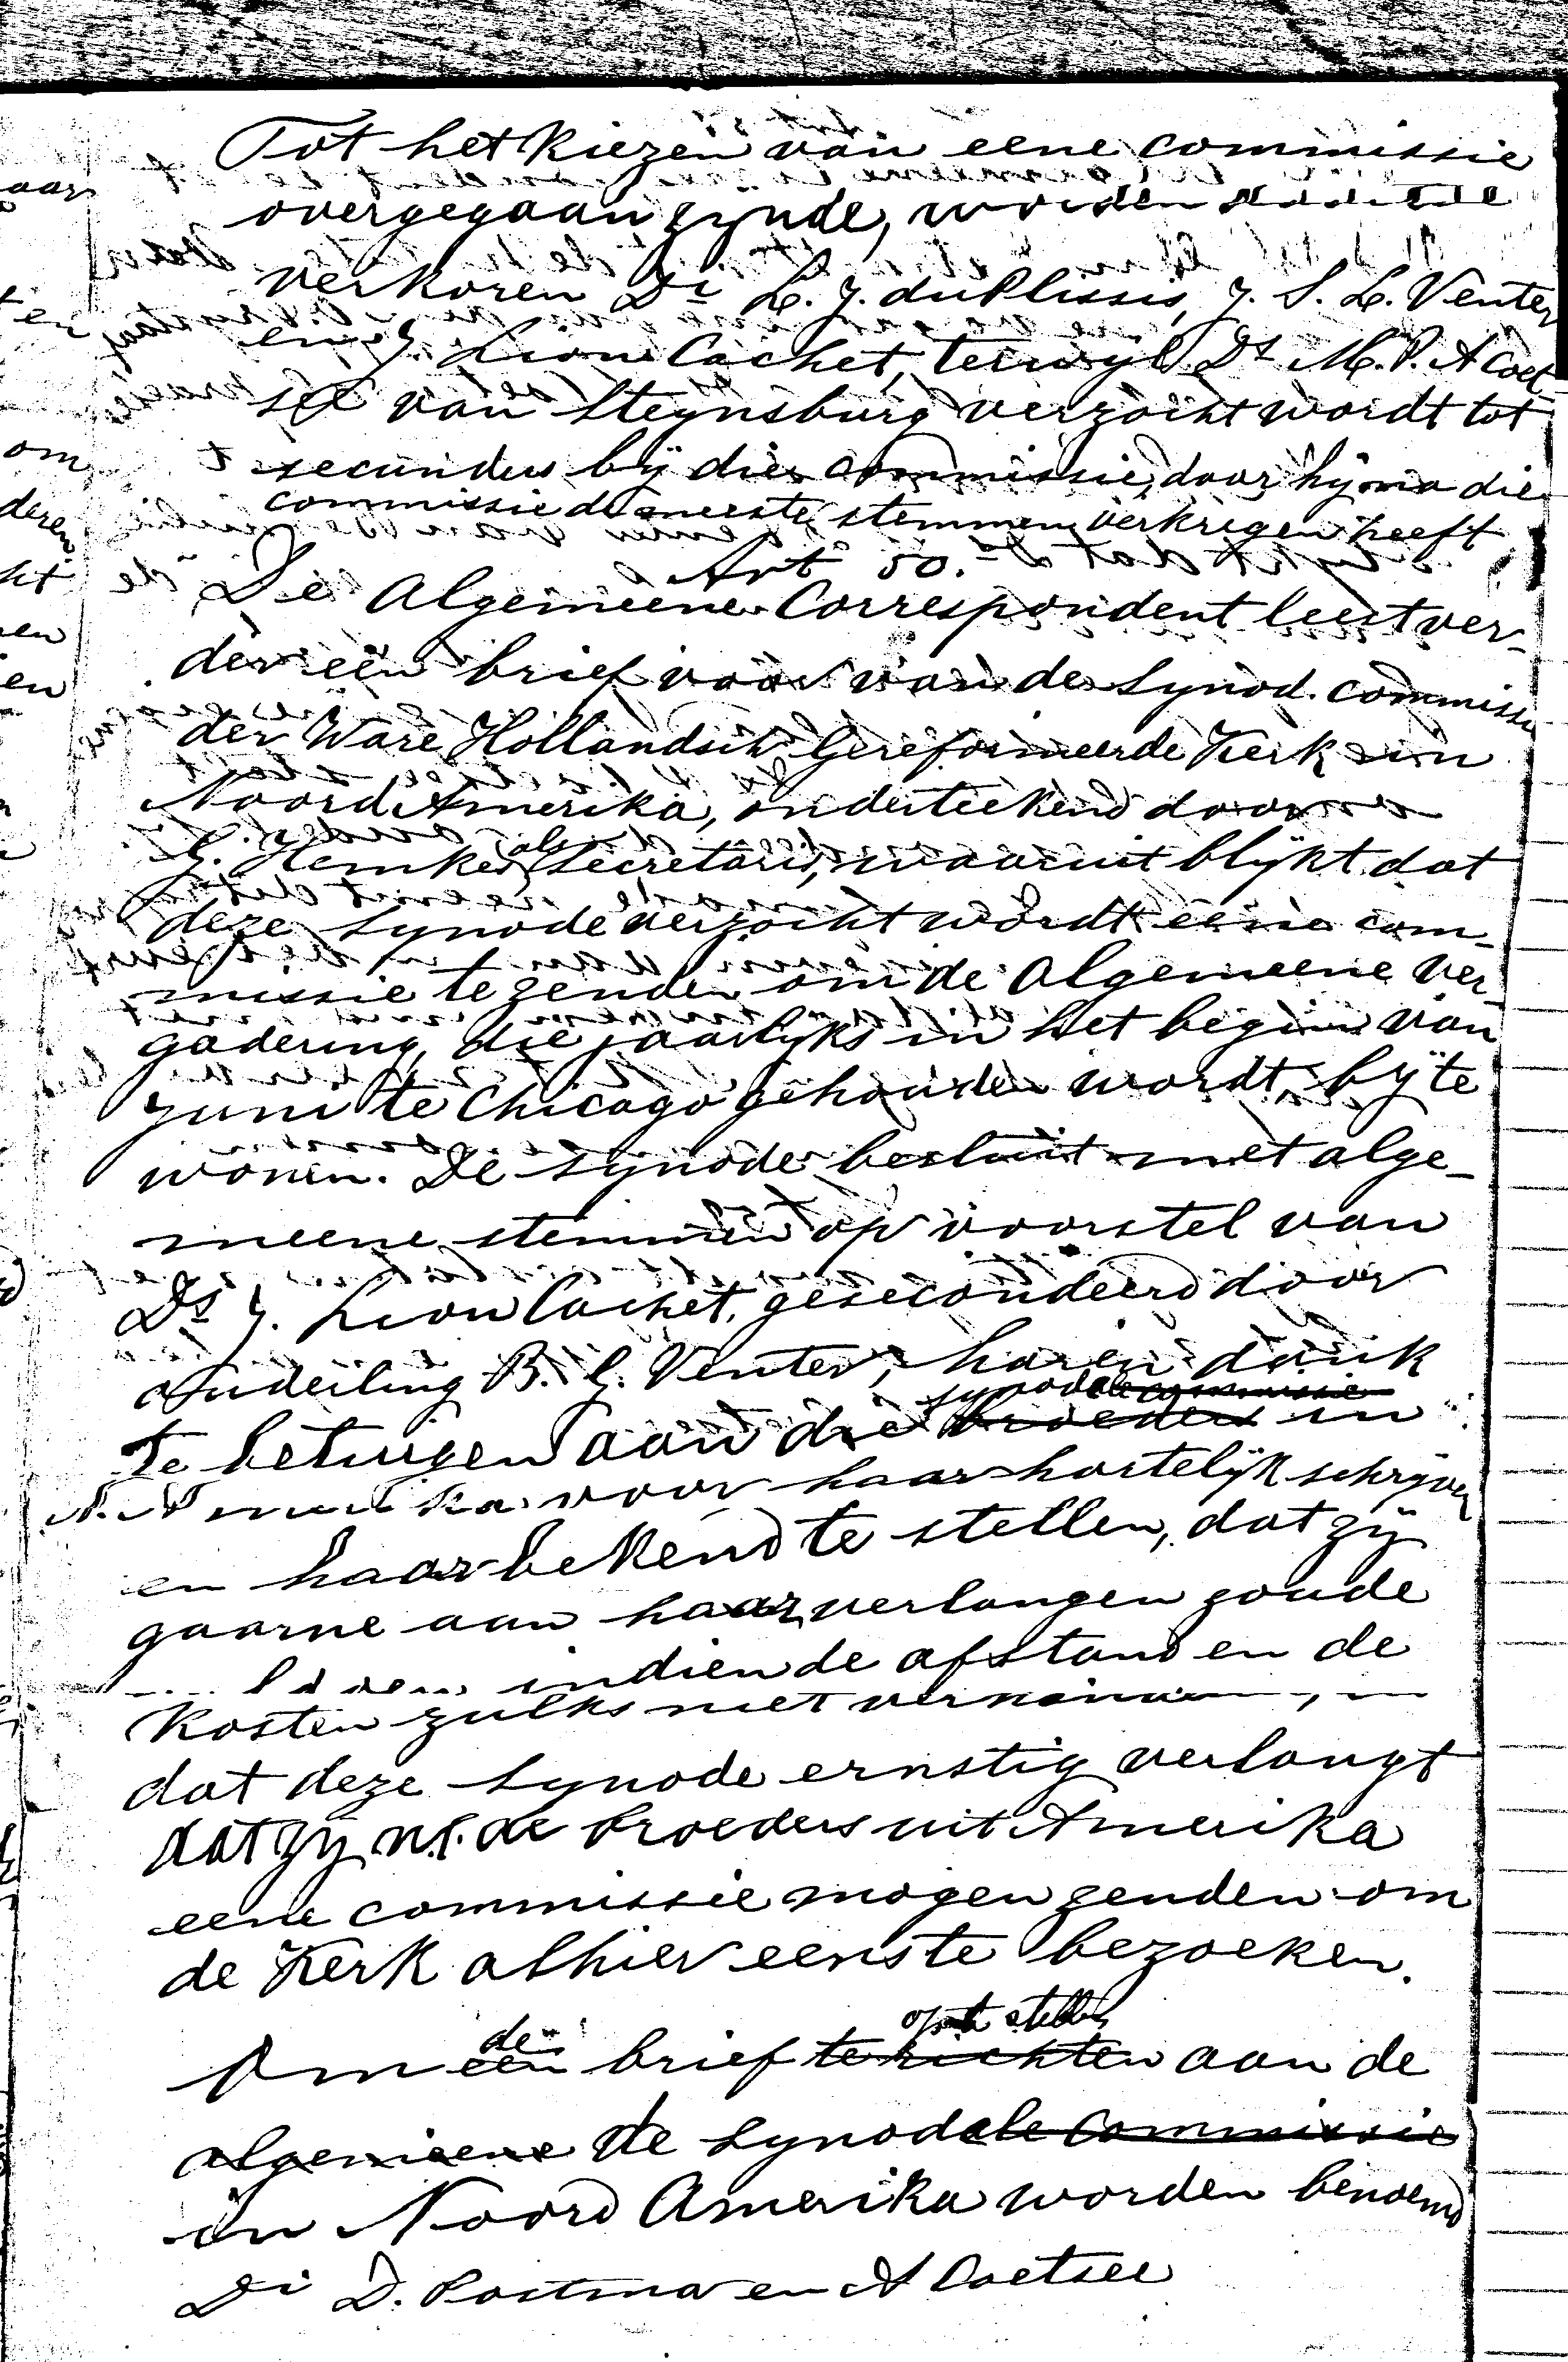 Tot het kiezen van eene commissie
overgegaan zynde, worden daartoe
verkoren Di L. J. duPlessis, J. S. L. Venter
en J. Lion Cachet, terwyl Ds M. P. A Coet-
see van Steynsburg verzocht wordt tot
secundus bÿ die commissie, daar hÿ na die
commissie de meeste stemmen verkregen heeft
Art 50.
De Algemeene Correspondent leest ver-
der een brief voor van de Synod. commissie
der Ware Hollandsch Gereformeerde Kerk in
Noord Amerika, onderteekend door
G. Hemkes als Secretaris, waaruit blÿkt dat
deze Synode verzocht wordt eene com-
missie te zenden om de Algemeene Ver-
gadering, die jaarlÿks in het begin van
Juni te Chicago gehouden wordt, bÿ te
wonen. De Synode besluit met alge-
meene stemmen op voorstel van
Ds J. Lion Cachet, gesecondeerd door
Ouderling B. J. Venter, haren dank
synodale commissie
te betuigen aan die broeders in
N. Amerika voor haar hartelÿk schrÿven
en haar bekend te stellen, dat zÿ
gaarne aan haar verlangen zoude
indien de afstand en de
kosten zulks niet
dat deze Synode ernstig verlangt
dat zÿ n.l. de broeders uit Amerika
eene commissie mogen zenden om
de Kerk alhier eens te bezoeken.
den op te stellen
Om een brief te richten aan de
algemeene de Synodale Commissie
in Noord Amerika worden benoemd
Di D. Postma en A Coetsee